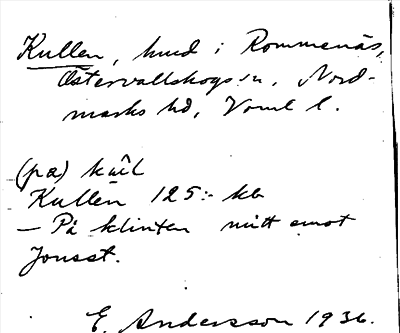 Kullen, hmd i Rommenäs,
Östervallskogs sn, Nord-
marks hd, Vrml l.
(pα) kúl̄
Kullen 125:- kb
— På klinten mitt emot
Jonsst.
E. Andersson 1936.